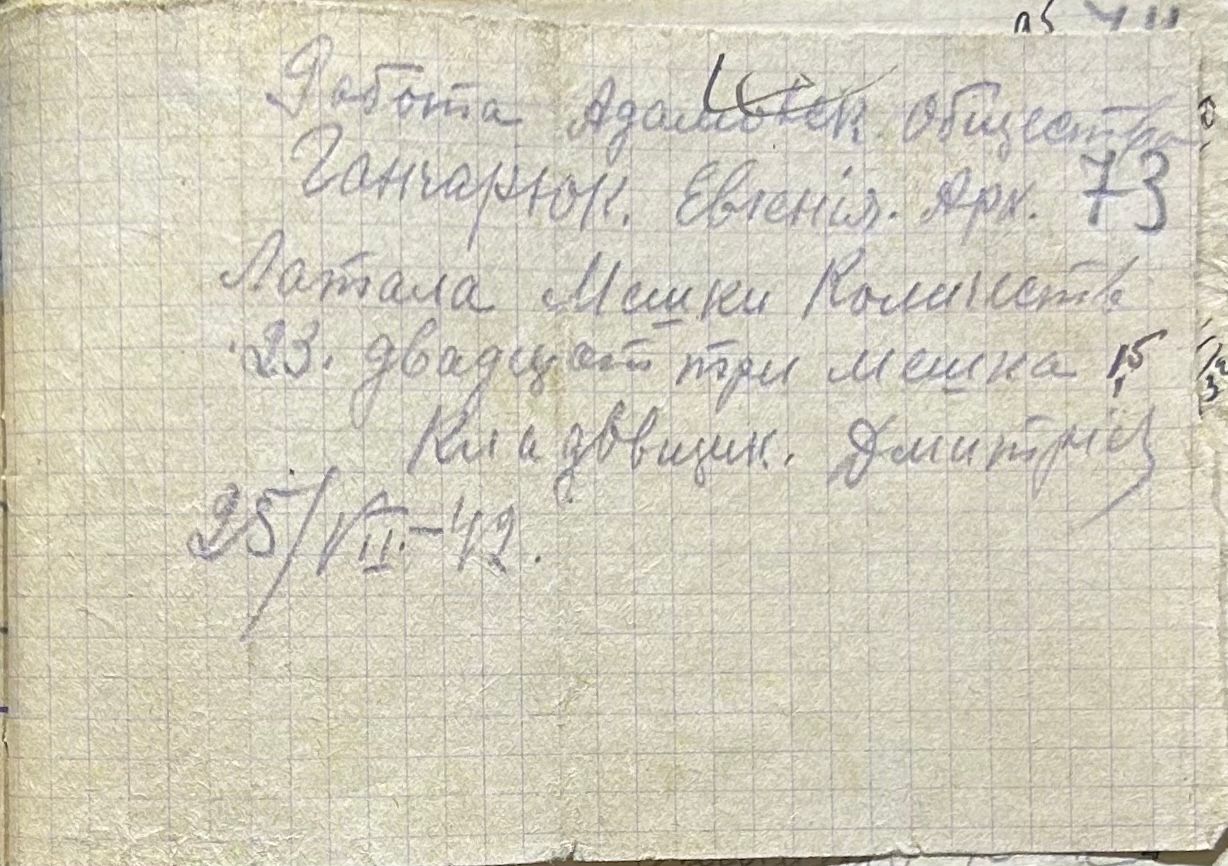 Работа Адамовск. Обществ
Ганчарюк. Евгенія. Арх. 73
Латала Мешки Количеств
23. двадцат три мешка 15
Кладовщик. Дмитрієв
25/VII-42.